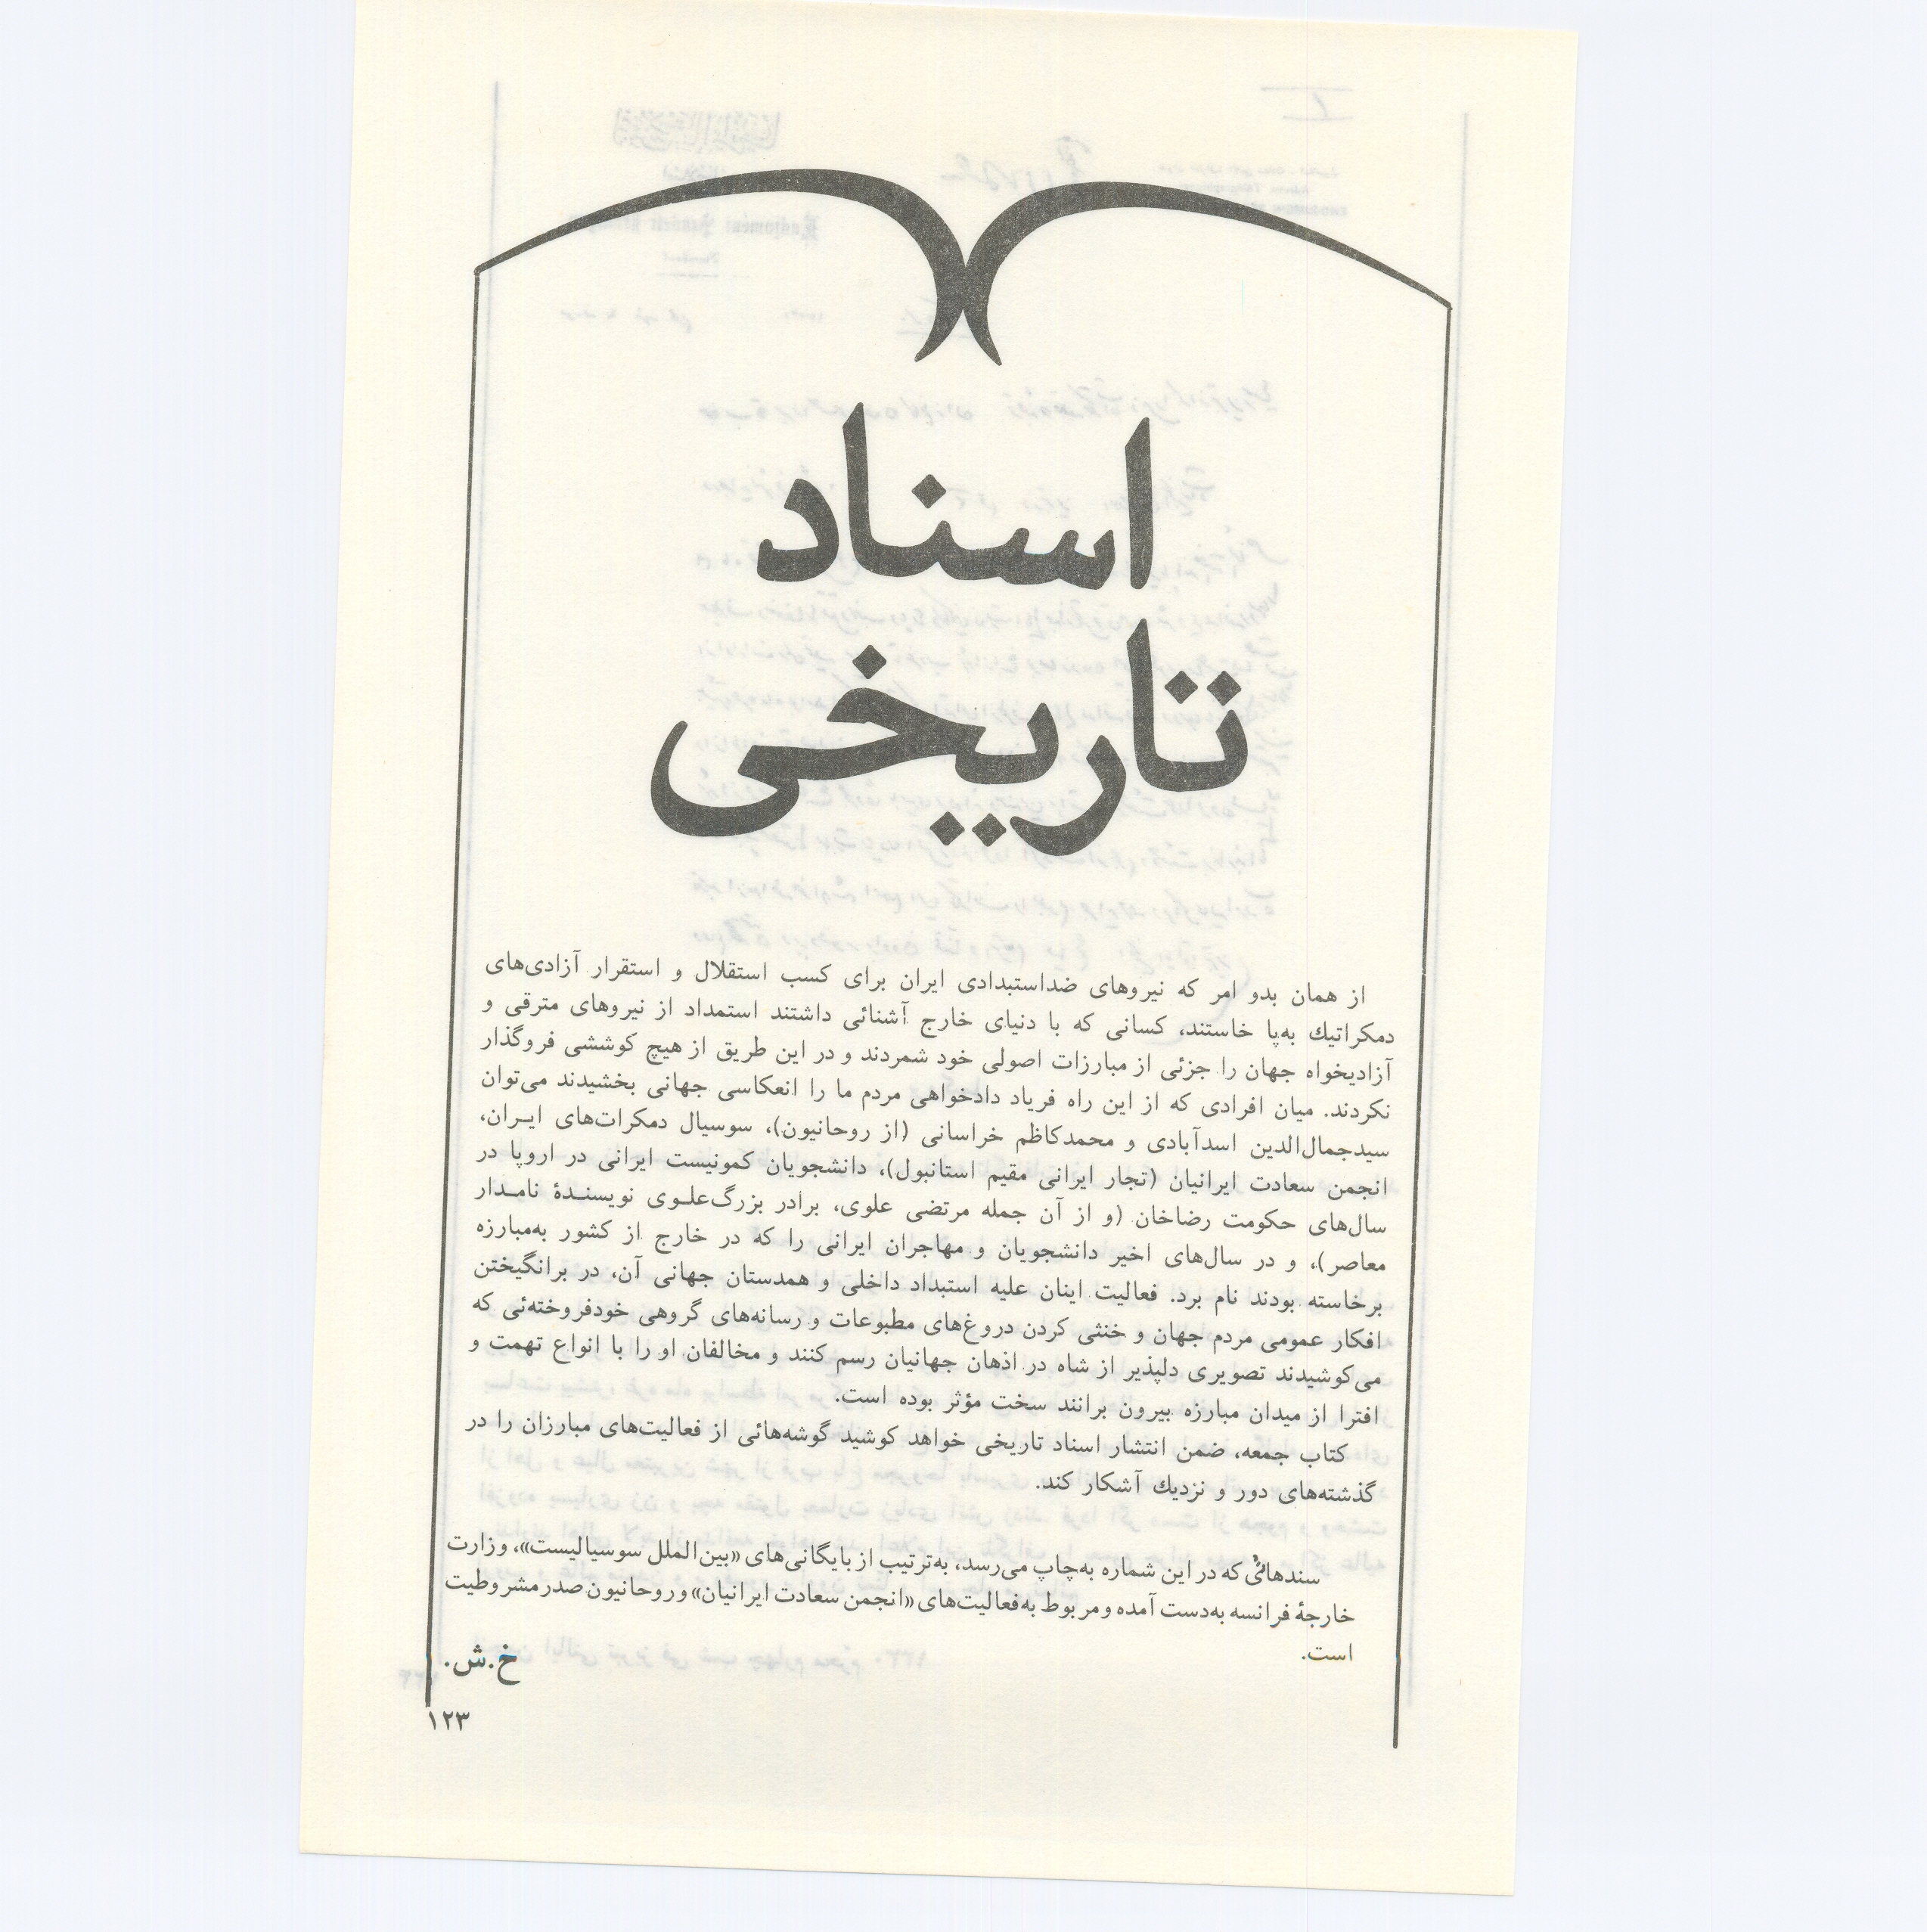 اسناد
تاریخی
از همان بدو امر که نیروهای ضداستبدادی ایران برای کسب استقلال و استقرار آزادی‌های
دمکراتیك به‌پا خاستند، کسانی که با دنیای خارج آشنائی داشتند استمداد از نیروهای مترقی و
آزادیخواه جهان را جزئی از مبارزات اصولی خود شمردند و در این طریق از هیچ کوششی فروگذار
نکردند. میان افرادی که از این راه فریاد دادخواهی مردم ما را انعکاسی جهانی بخشیدند می‌توان
سیدجمال‌الدین اسدآبادی و محمدکاظم خراسانی (از روحانیون)، سوسیال دمکرات‌های ایـران،
انجمن سعادت ایرانیان (تجار ایرانی مقیم استانبول)، دانشجویان کمونیست ایرانی در اروپا در
سال‌های حکومت رضاخان (و از آن جمله مرتضی علوی، برادر بزرگ‌علـوی نویسنـدهٔ نامـدار
معاصر)، و در سال‌های اخیر دانشجویان و مهاجران ایرانی را که در خارج از کشور به‌مبارزه
برخاسته بودند نام برد. فعالیت اینان علیه استبداد داخلی و همدستان جهانی آن، در برانگیختن
افکار عمومی مردم جهان و خنثی کردن دروغ‌های مطبوعات و رسانه‌های گروهی خودفروخته‌ئی که
می‌کوشیدند تصویری دلپذیر از شاه در اذهان جهانیان رسم کنند و مخالفان او را با انواع تهمت و
افترا از میدان مبارزه بیرون برانند سخت مؤثر بوده است.
کتاب جمعه، ضمن انتشار اسناد تاریخی خواهد کوشید گوشه‌هائی از فعالیت‌های مبارزان را در
گذشته‌های دور و نزدیك آشکار کند.
سندهائی که در این شماره به‌چاپ می‌رسد، به‌ترتیب از بایگانی‌های «بین‌الملل سوسیالیست»، وزارت
خارجهٔ فرانسه به‌دست آمده و مربوط به‌فعالیت‌های «انجمن سعادت ایرانیان» و روحانیون صدر مشروطیت
است.
خ.ش.
۱۲۳